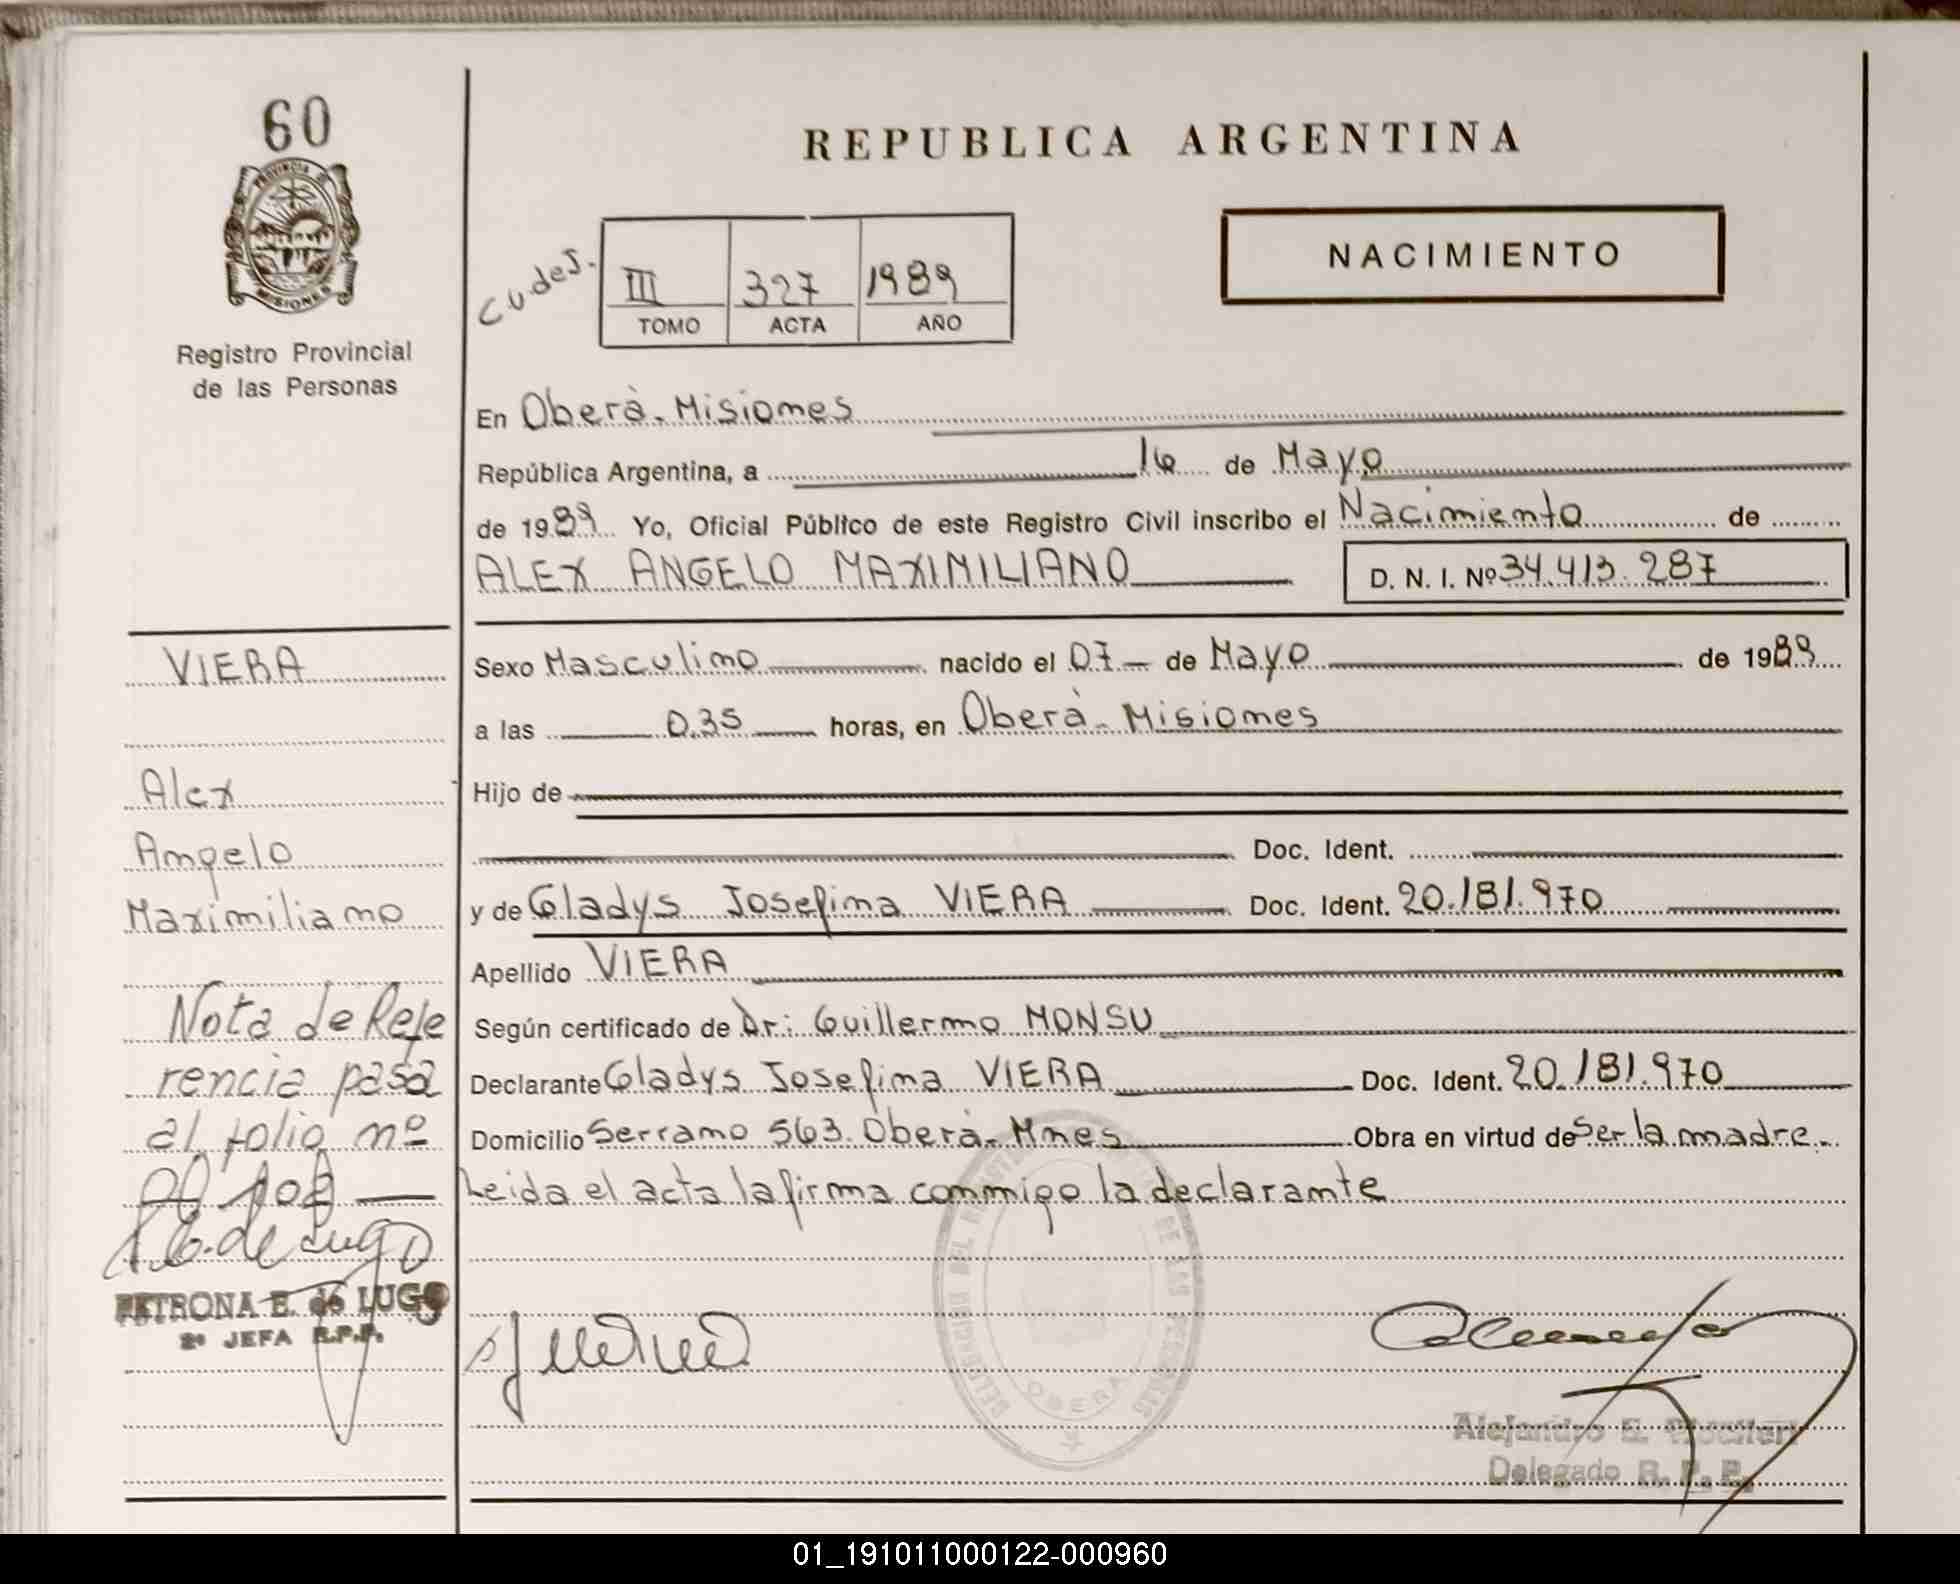 60
PROVINCIA DE
MISIONES
Registro Provincial
de las Personas
REPUBLICA ARGENTINA
NACIMIENTO
CudeJ.
III 327 1989
TOMO ACTA AÑO
En Oberà - Misiones
República Argentina, a 16 de Mayo
de 1989 Yo, Oficial Público de este Registro Civil inscribo el Nacimiento de
ALEX ANGELO MAXIMILIANO D. N. I. Nº 34.413.287
VIERA
Alex
Angelo
Maximiliano
Nota de Refe
rencia pasa
al folio nº
108
E. de Lugo
PETRONA E. de LUGO
2º JEFA R.P.P.
Sexo Masculino nacido el 07 - de Mayo de 1989
a las 0.35 horas, en Oberà - Misiones
Hijo de
Doc. Ident.
y de Gladys Josefina VIERA Doc. Ident. 20.181.970
Apellido VIERA
Según certificado de Dr: Guillermo MONSU
Declarante Gladys Josefina VIERA Doc. Ident. 20.181.970
Domicilio Serrano 563. Oberà - Mnes Obra en virtud de ser la madre.
Leida el acta la firma conmigo la declarante
DELEGACION DEL REGISTRO DE LAS PERSONAS
OBERA
Alejandro E.
Delegado R. P. P.
01_191011000122-000960